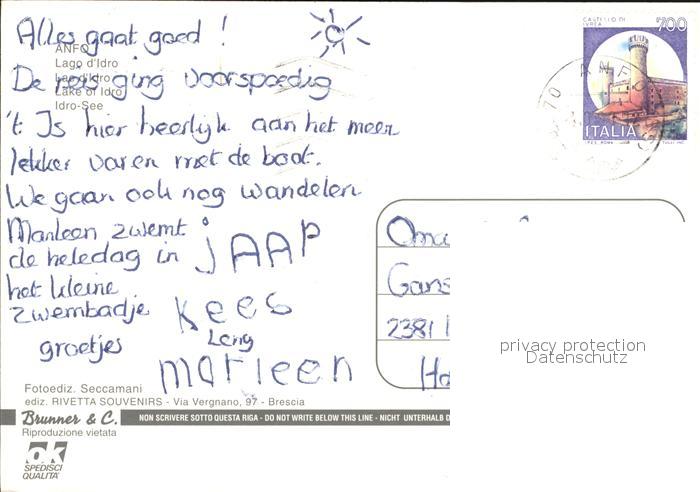 Alles gaat goed !
ANFO
Lago d'Idro
Lac d'Idro
Lake of Idro
Idro-See
De reis ging voorspoedig
't Is hier heerlijk aan het meer
lekker varen met de boot.
We gaan ook nog wandelen
Marleen zwemt
de heledag in
het kleine
zwembadje
groetjes
jAAP
Kees
Leny
marleen
CASTELLO DI
IVREA
700
ITALIA
70 ANFO
Oma
Gans
2381
Ho
privacy protection
Datenschutz
Fotoediz. Seccamani
ediz. RIVETTA SOUVENIRS - Via Vergnano, 97 - Brescia
Brunner & C. NON SCRIVERE SOTTO QUESTA RIGA - DO NOT WRITE BELOW THIS LINE - NICHT UNTERHALB D
Riproduzione vietata
ok
SPEDISCI
QUALITA'